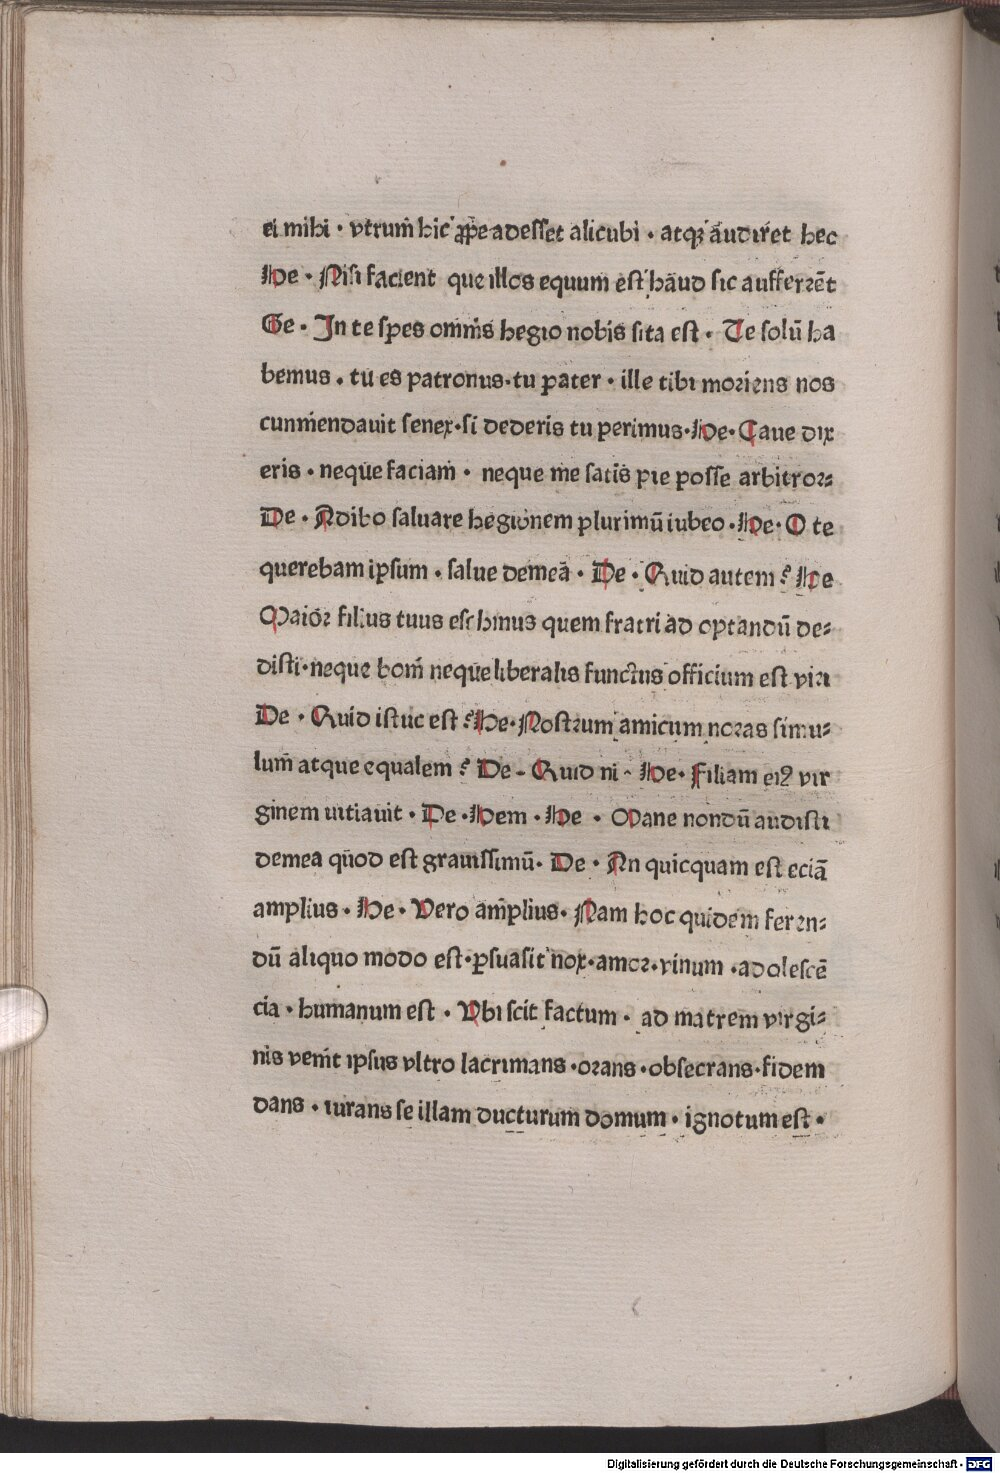 ei mihi · vtrum̄ hic ꝓpe adesset alicubi · atqꝫ audiret hec
He · Nisi facient que illos equum est haud sic aufferrēt
Ge · In te spes omnis hegio nobis sita est · Te solū ha
bemus · tu es patronus · tu pater · ille tibi moriens nos
cunmendauit senex · si dederis tu perimus · He · Caue dix
eris · neque faciam · neque me satis pie posse arbitror⸗
De · Adibo saluare hegionem plurimū iubeo · He · O te
querebam ipsum · salue demeā · De · Quid autem ? He
Maior filius tuus eschinus quem fratri ad optandū de⸗
disti · neque bom̄ neque liberalis functus officium est viri
De · Quid istuc est ? He · Nostrum amicum noras simu⸗
lum̄ atque equalem ? De - Quid ni - He · Filiam eiꝰ vir
ginem uitiauit · De · Hem · He · Mane nondū audisti
demea quod est grauissimū · De · An quicquam est eciā
amplius · He · Vero amplius · Nam hoc quidem feren⸗
dū aliquo modo est · ꝑsuasit nox · amor · vinum · adolescē
cia · humanum est · Vbi scit factum · ad matrem virgi⸗
nis venit ipsus vltro lacrimans · orans · obsecrans · fidem
dans · iurans se illam ducturum domum · ignotum est ·
Digitalisierung gefördert durch die Deutsche Forschungsgemeinschaft - DFG